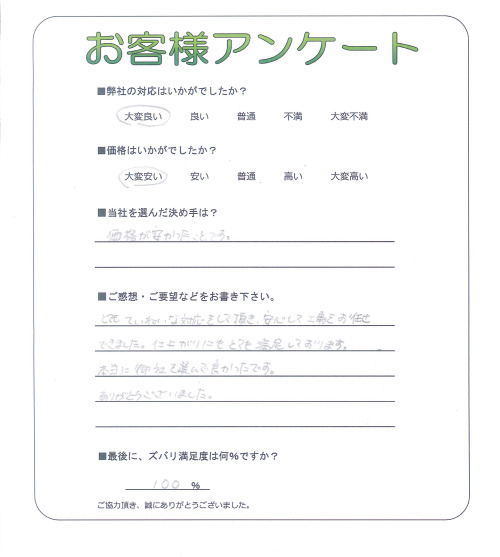 お客様アンケート
■弊社の対応はいかがでしたか？
大変良い 良い 普通 不満 大変不満
■価格はいかがでしたか？
大変安い 安い 普通 高い 大変高い
■当社を選んだ決め手は？
価格が安かったことです。
■ご感想・ご要望などをお書き下さい。
とてもていねいな対応をして頂き、安心して工事をお任せ
できました。仕上がりにもとても満足しております。
本当に御社を選んで良かったです。
ありがとうございました。
■最後に、ズバリ満足度は何%ですか？
100 %
ご協力頂き、誠にありがとうございました。